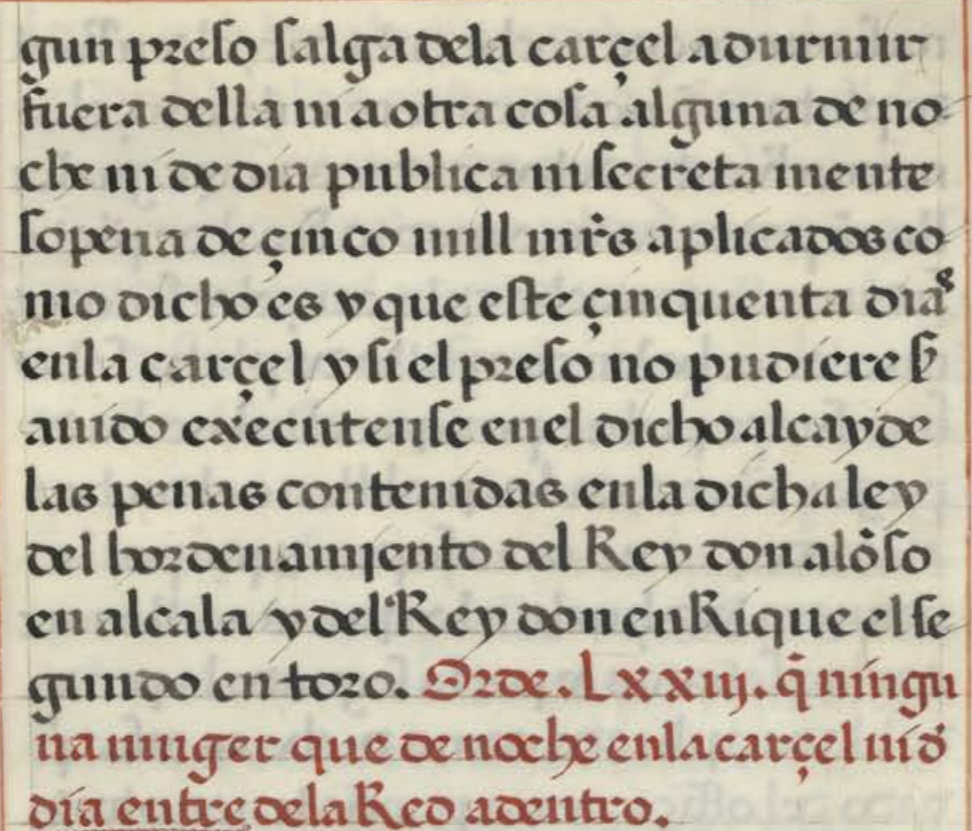 gun preso salga dela carçel a durmir
fuera della ni a otra cosa alguna de no-
che ni de dia publica ni secreta mente
so pena de çinco mill mrs aplicados co-
mo dicho es y que este çinquenta dias
enla carçel y si el preso no pudiere sr
auido executense enel dicho alcayde
las penas contenidas enla dicha ley
del hordenamjento del Rey don alõso
en alcala y del Rey don enRique el se-
gundo en toro. Orde. Lxxiij. q̃ ningu
na muger que de noche enla carçel ni d̃
dia entre dela Red adentro.